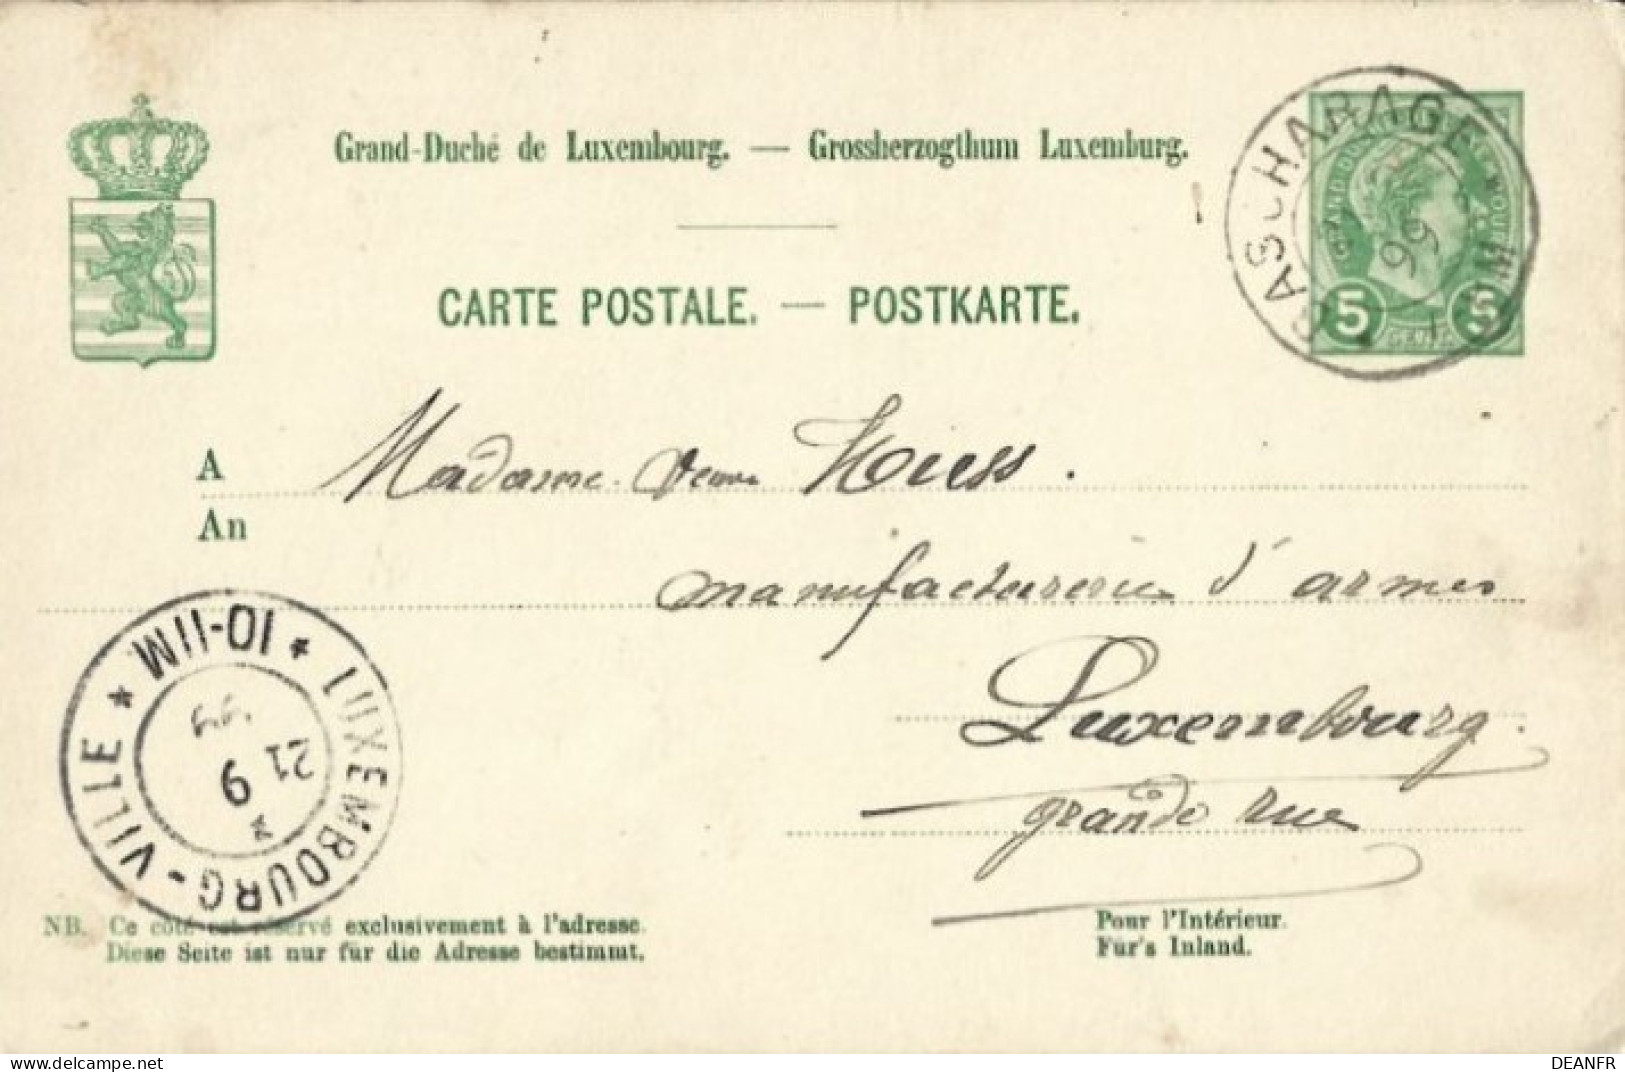 Grand-Duché de Luxembourg. — Grossherzogthum Luxemburg.
CARTE POSTALE. — POSTKARTE.
BASCHARAGE
99
5 5
A
An
Madame Veuve
manufacturerie d'armes
Luxembourg.
grande rue
LUXEMBOURG-VILLE
* 10-11M *
21 9
NB. Ce côté est réservé exclusivement à l'adresse.
Diese Seite ist nur für die Adresse bestimmt.
Pour l'Intérieur.
Für's Inland.
DEANFR